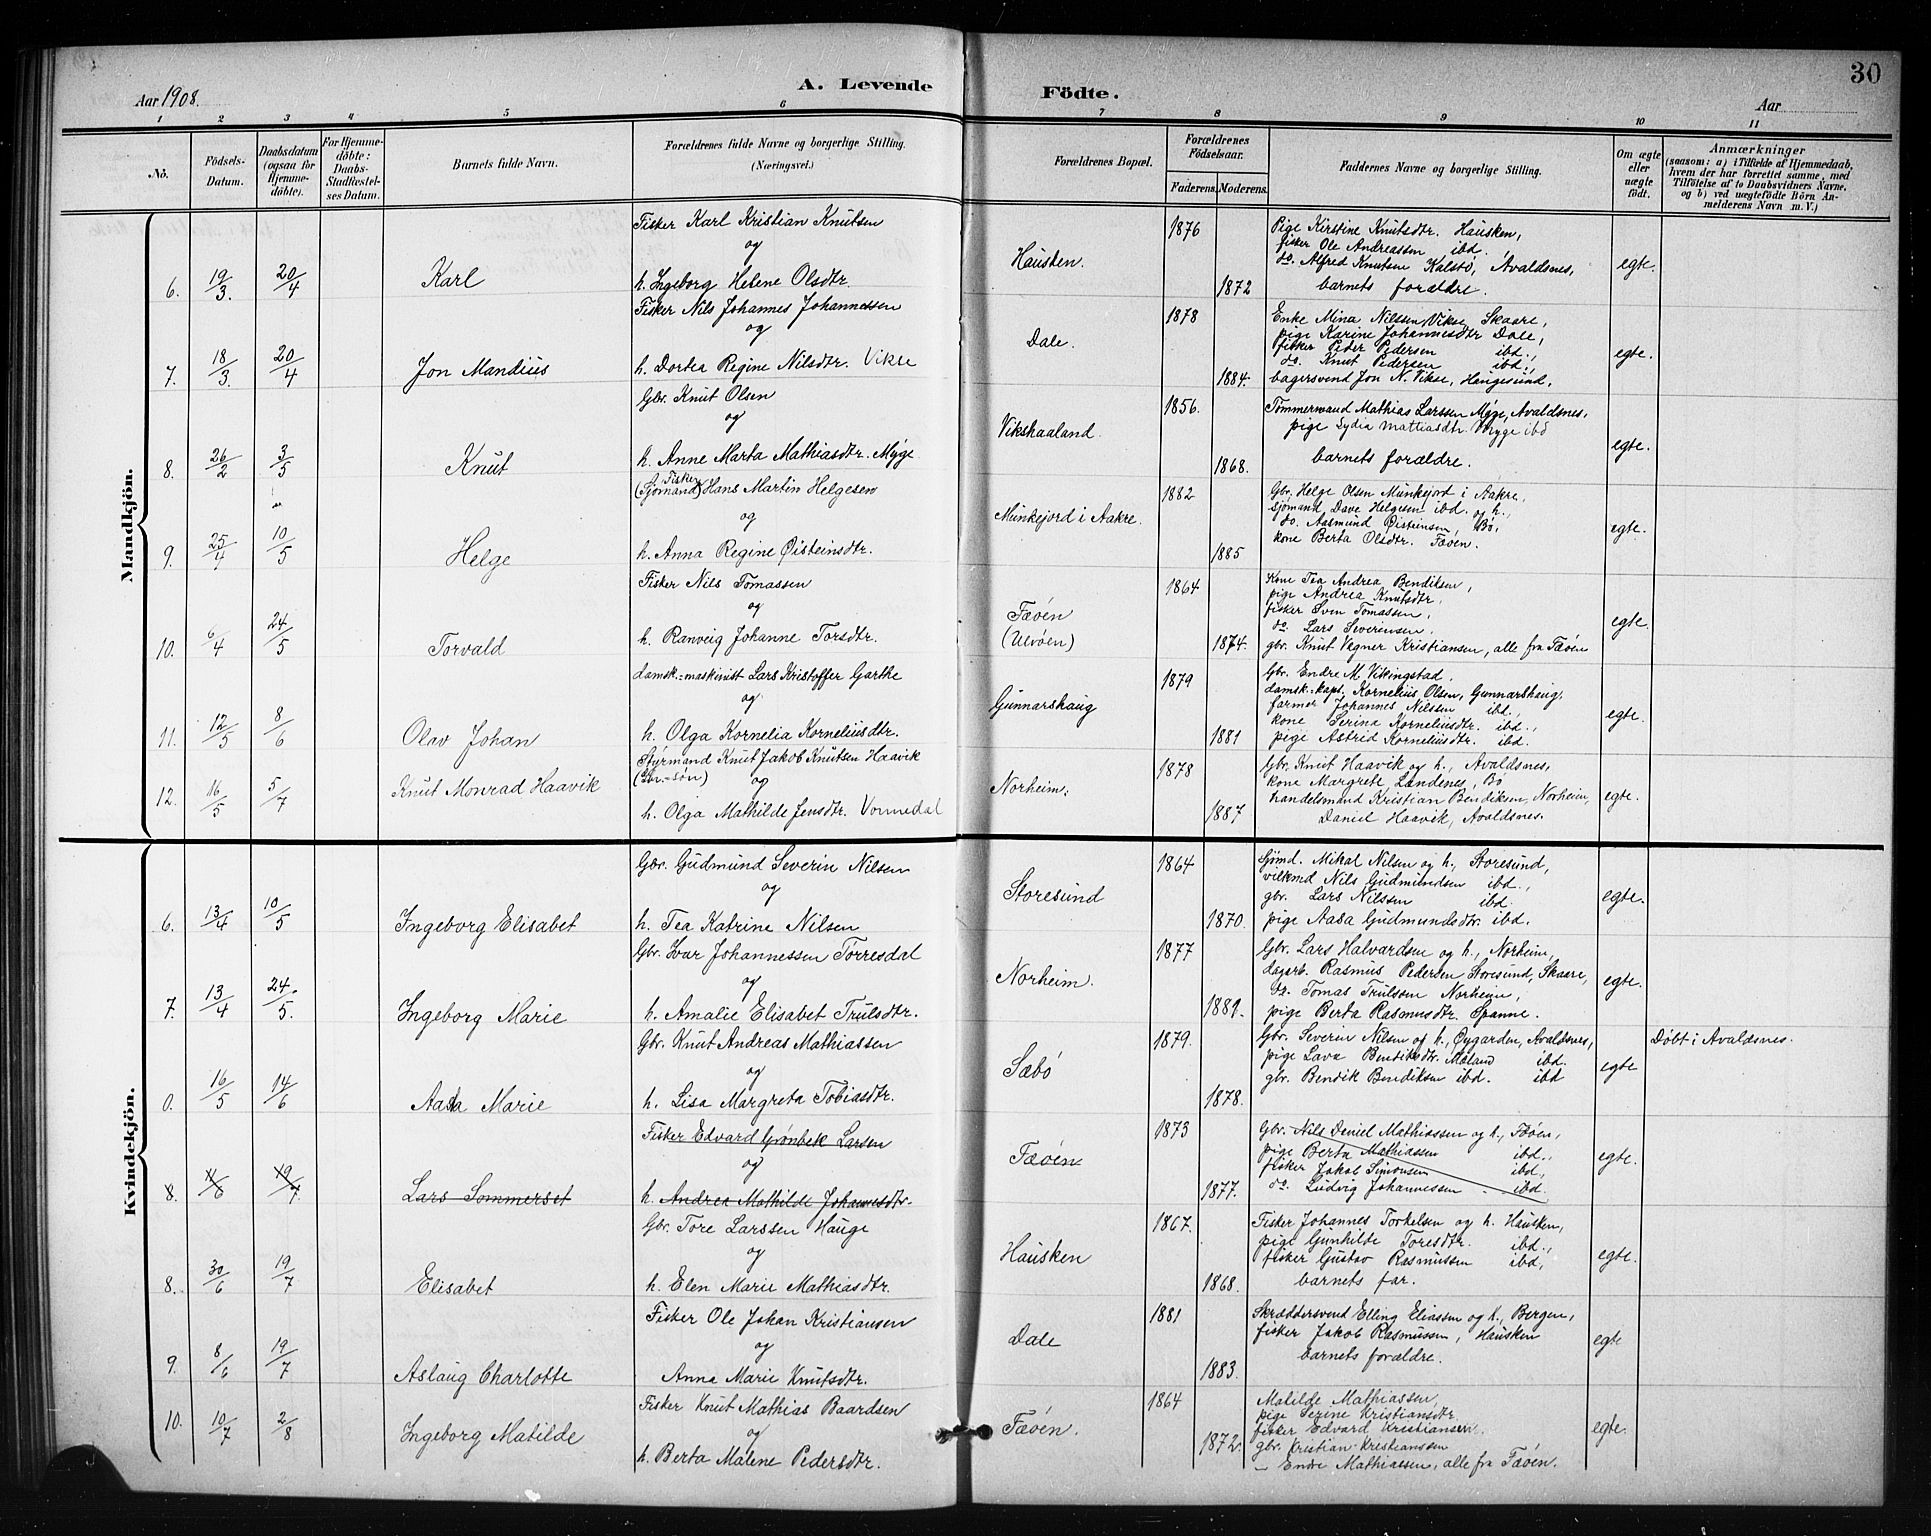 30
Aar 1908.
A. Levende
Födte.
Aar
1 2 3 4 5 6 7 8 9 10 11
No.
Födsels-Datum.
Daabsdatum (ogsaa for Hjemmedöbte).
For Hjemmedöbte: Daabs-Stadfæstelses Datum.
Barnets fulde Navn.
Forældrenes fulde Navne og borgerlige Stilling. (Næringsvei.)
Forældrenes Bopæl.
Forældrenes Födselsaar.
Faderens. Moderens.
Faddernes Navne og borgerlige Stilling.
Om ægte eller uægte födt.
Anmærkninger
(saasom: a) i Tilfælde af Hjemmedaab, hvem der har forrettet samme, med Tilföielse af to Daabsvidners Navne, og b) ved uægtefödte Börn Anmelderens Navn m. V.)
Mandkjön.
6. 19/3. 20/4 Karl
Fisker Karl Kristian Knutsen
og
h. Ingeborg Helene Olsdtr.
Hausken.
1876
1872
Pige Kirstine Knutsdtr. Hausken,
fisker Ole Andreassen ibd.
do. Alfred Knutsen Kalstø, Avaldsnes,
barnets forældre.
egte.
7. 18/3. 20/4 Jon Mandius
Fisker Nils Johannes Johannessen
og
h. Dortea Regine Nilsdtr. Vikse
Dale.
1878
1884.
Enke Mina Nilssen Vikse, Skaare,
pige Karine Johannesdtr Dale,
fisker Peder Pedersen ibd.,
do. Knut Pedersen ibd.,
bagersvend Jon N. Vikse, Haugesund.
egte.
8. 26/2 3/5 Knut
Gbr. Knut Olsen
og
h. Anne Marta Mathiasdtr. Myge
Vikshaaland.
1856.
1868.
Tømmermand Mathias Larssen Myge, Avaldsnes,
pige Lydia Mattiasdtr. Myge ibd
barnets forældre.
egte.
9. 25/4 10/5 Helge
Fisker
(Sjømand) Hans Martin Helgesen
og
h. Anna Regine Øisteinsdtr.
Munkejord i Aakre.
1882
1885
Gbr. Helge Olsen Munkejord i Aakre,
sjømand Dave Helgesen ibd. og h.,
do. Aasmund Øisteinsen, Bø,
kone Berta Olsdtr. Fæøen.
egte.
10. 6/4 24/5 Torvald
Fisker Nils Tomassen
og
h. Ranveig Johanne Torsdtr.
Fæøen
(Ulvøen)
1864
1874.
Kone Tea Andrea Bendiksen,
pige Andrea Knutsdtr.
fisker Sven Tomassen,
do. Lars Severinsen,
gbr. Knut Vegner Kristiansen, alle fra Fæøen
egte.
11. 12/5 8/6 Olav Johan
damsk.-maskinist Lars Kristoffer Garthe
og
h. Olga Kornelia Korneliusdtr.
Gunnarshaug
1879
1881
Gbr. Endre M. Vikingstad.
damsk.-kapt. Kornelius Olsen, Gunnarshaug,
farmer Johannes Nilsen ibd.,
kone Serina Korneliusdtr. ibd.,
pige Astrid Korneliusdtr. ibd.
egte.
12. 16/5 5/7 Knut Monrad Haavik
Styrmand Knut Jakob Knutsen Haavik
(Gbr.-søn) og
h. Olga Mathilde Jensdtr. Vormedal
Norheim.
1878
1887
Gbr. Knut Haavik og h., Avaldsnes,
kone Margrete Landenes, Bø
handelsmand Kristian Bendiksen, Norheim,
Daniel Haavik, Avaldsnes.
egte.
Kvindekjön.
6. 13/4 10/5 Ingeborg Elisabet
Gbr. Gudmund Severin Nilsen
og
h. Tea Katrine Nilsen
Storesund
1864
1870.
Sjømd. Mikal Nilsen og h., Storesund,
Nils Gudmundsen ibd.,
gbr. Lars Nilssen ibd.
pige Aasa Gudmundsdtr. ibd.
egte.
7. 13/4 24/5. Ingeborg Marie
Gbr. Ivar Johannessen Torresdal
og
h. Amalie Elisabet Trulsdtr.
Norheim.
1877
1881.
Gbr. Lars Halvardsen og h., Norheim,
dagarb. Rasmus Pedersen Storesund, Skaare,
do. Tomas Trulsson Norheim,
pige Berta Rasmusdtr. Spanne.
egte.
0. 16/5 14/6 Aasa Marie
Gbr. Knut Andreas Mathiassen
og
h. Lisa Margreta Tobiasdtr.
Sæbø
1879.
1878.
Gbr. Severin Nilsen og h., Øygarden, Avaldsnes,
pige Lava Bendiksdtr. Maland ibd.
gbr. Bendik Bendiksen ibd. ibd
egte
Døbt i Avaldsnes.
8. 11/6 19/7 Lars Sommerset
Fisker Edvard Grønbek Larsen
og
h. Andrea Mathilde Johannesdtr.
Fæøen
1873
1877.
Gbr. Nils Daniel Mathiassen og h., Fæøen,
pige Berta Mathiassen ibd.,
fisker Jakob Simonsen ibd,
do. Ludvig Johannessen - ibd.
egte.
8. 30/6 19/7 Elisabet
Gbr. Tore Larssen Hauge
og
h. Elen Marie Mathiasdtr.
Hausken
1867.
1868.
Fisker Johannes Torkelsen og h. Hausken,
pige Gunhilde Toresdtr. ibd.,
fisker Gustav Rasmussen ibd,
barnets far.
egte.
9. 8/6 19/7 Aslaug Charlotte
Fisker Ole Johan Kristiansen
og
Anna Marie Knutsdtr.
Dale
1881
1883.
Skræddersvend Elling Eliassen og h., Bergen,
fisker Jakob Rasmussen, Hausken
barnets forældre.
egte
10. 10/7 2/8 Ingeborg Matilde
Fisker Knut Mathias Baardsen
og
h. Berta Malene Pedersdtr.
Fæøen.
1864
1872.
Matilde Mathiassen,
pige Serine Kristiansdtr,
fisker Edvard Kristiansen.
gbr. Kristian Kristianssen
- Endre Mathiassen, alle fra Fæøen.
egte.